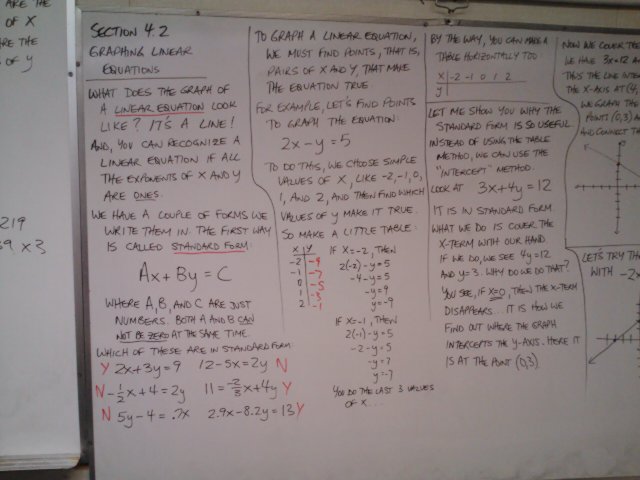 ARE THE
OF X
ARE THE
OF Y
219
39 x 3
SECTION 4.2
GRAPHING LINEAR
EQUATIONS
WHAT DOES THE GRAPH OF
A LINEAR EQUATION LOOK
LIKE? IT'S A LINE!
AND, YOU CAN RECOGNIZE A
LINEAR EQUATION IF ALL
THE EXPONENTS OF X AND Y
ARE ONES.
WE HAVE A COUPLE OF FORMS WE
WRITE THEM IN. THE FIRST WAY
IS CALLED STANDARD FORM:
Ax + By = C
WHERE A, B, AND C ARE JUST
NUMBERS. BOTH A AND B CAN
NOT BE ZERO AT THE SAME TIME.
WHICH OF THESE ARE IN STANDARD FORM
Y 2x + 3y = 9 12 - 5x = 2y N
N -1/2x + 4 = 2y 11 = -2/3x + 4y Y
N 5y - 4 = .7x 2.9x - 8.2y = 13 Y
TO GRAPH A LINEAR EQUATION,
WE MUST FIND POINTS, THAT IS,
PAIRS OF X AND Y, THAT MAKE
THE EQUATION TRUE
FOR EXAMPLE, LET'S FIND POINTS
TO GRAPH THE EQUATION:
2x - y = 5
TO DO THIS, WE CHOOSE SIMPLE
VALUES OF X, LIKE -2, -1, 0,
1, AND 2, AND THEN FIND WHICH
VALUES OF Y MAKE IT TRUE.
SO MAKE A LITTLE TABLE:
X Y
-2 -9
-1 -7
0 -5
1 -3
2 -1
IF X=-2, THEN
2(-2) - y = 5
-4 - y = 5
-y = 9
y = -9
IF X=-1, THEN
2(-1) - y = 5
-2 - y = 5
-y = 7
y = -7
YOU DO THE LAST 3 VALUES
OF X...
BY THE WAY, YOU CAN MAKE A
TABLE HORIZONTALLY TOO
X -2 -1 0 1 2
Y
LET ME SHOW YOU WHY THE
STANDARD FORM IS SO USEFUL
INSTEAD OF USING THE TABLE
METHOD, WE CAN USE THE
"INTERCEPT" METHOD.
LOOK AT 3x + 4y = 12
IT IS IN STANDARD FORM.
WHAT WE DO IS COVER THE
X-TERM WITH OUR HAND.
IF WE DO, WE SEE 4y = 12
AND y = 3. WHY DO WE DO THAT?
YOU SEE, IF X=0, THEN THE X-TERM
DISAPPEARS... IT IS HOW WE
FIND OUT WHERE THE GRAPH
INTERCEPTS THE Y-AXIS. HERE IT
IS AT THE POINT (0,3).
NOW WE COVER THE
WE HAVE 3x = 12 A
THUS THE LINE INTE
THE X-AXIS AT (4,
WE GRAPH THE
POINT (0,3) A
AND CONNECT T
LET'S TRY TH
WITH -2x